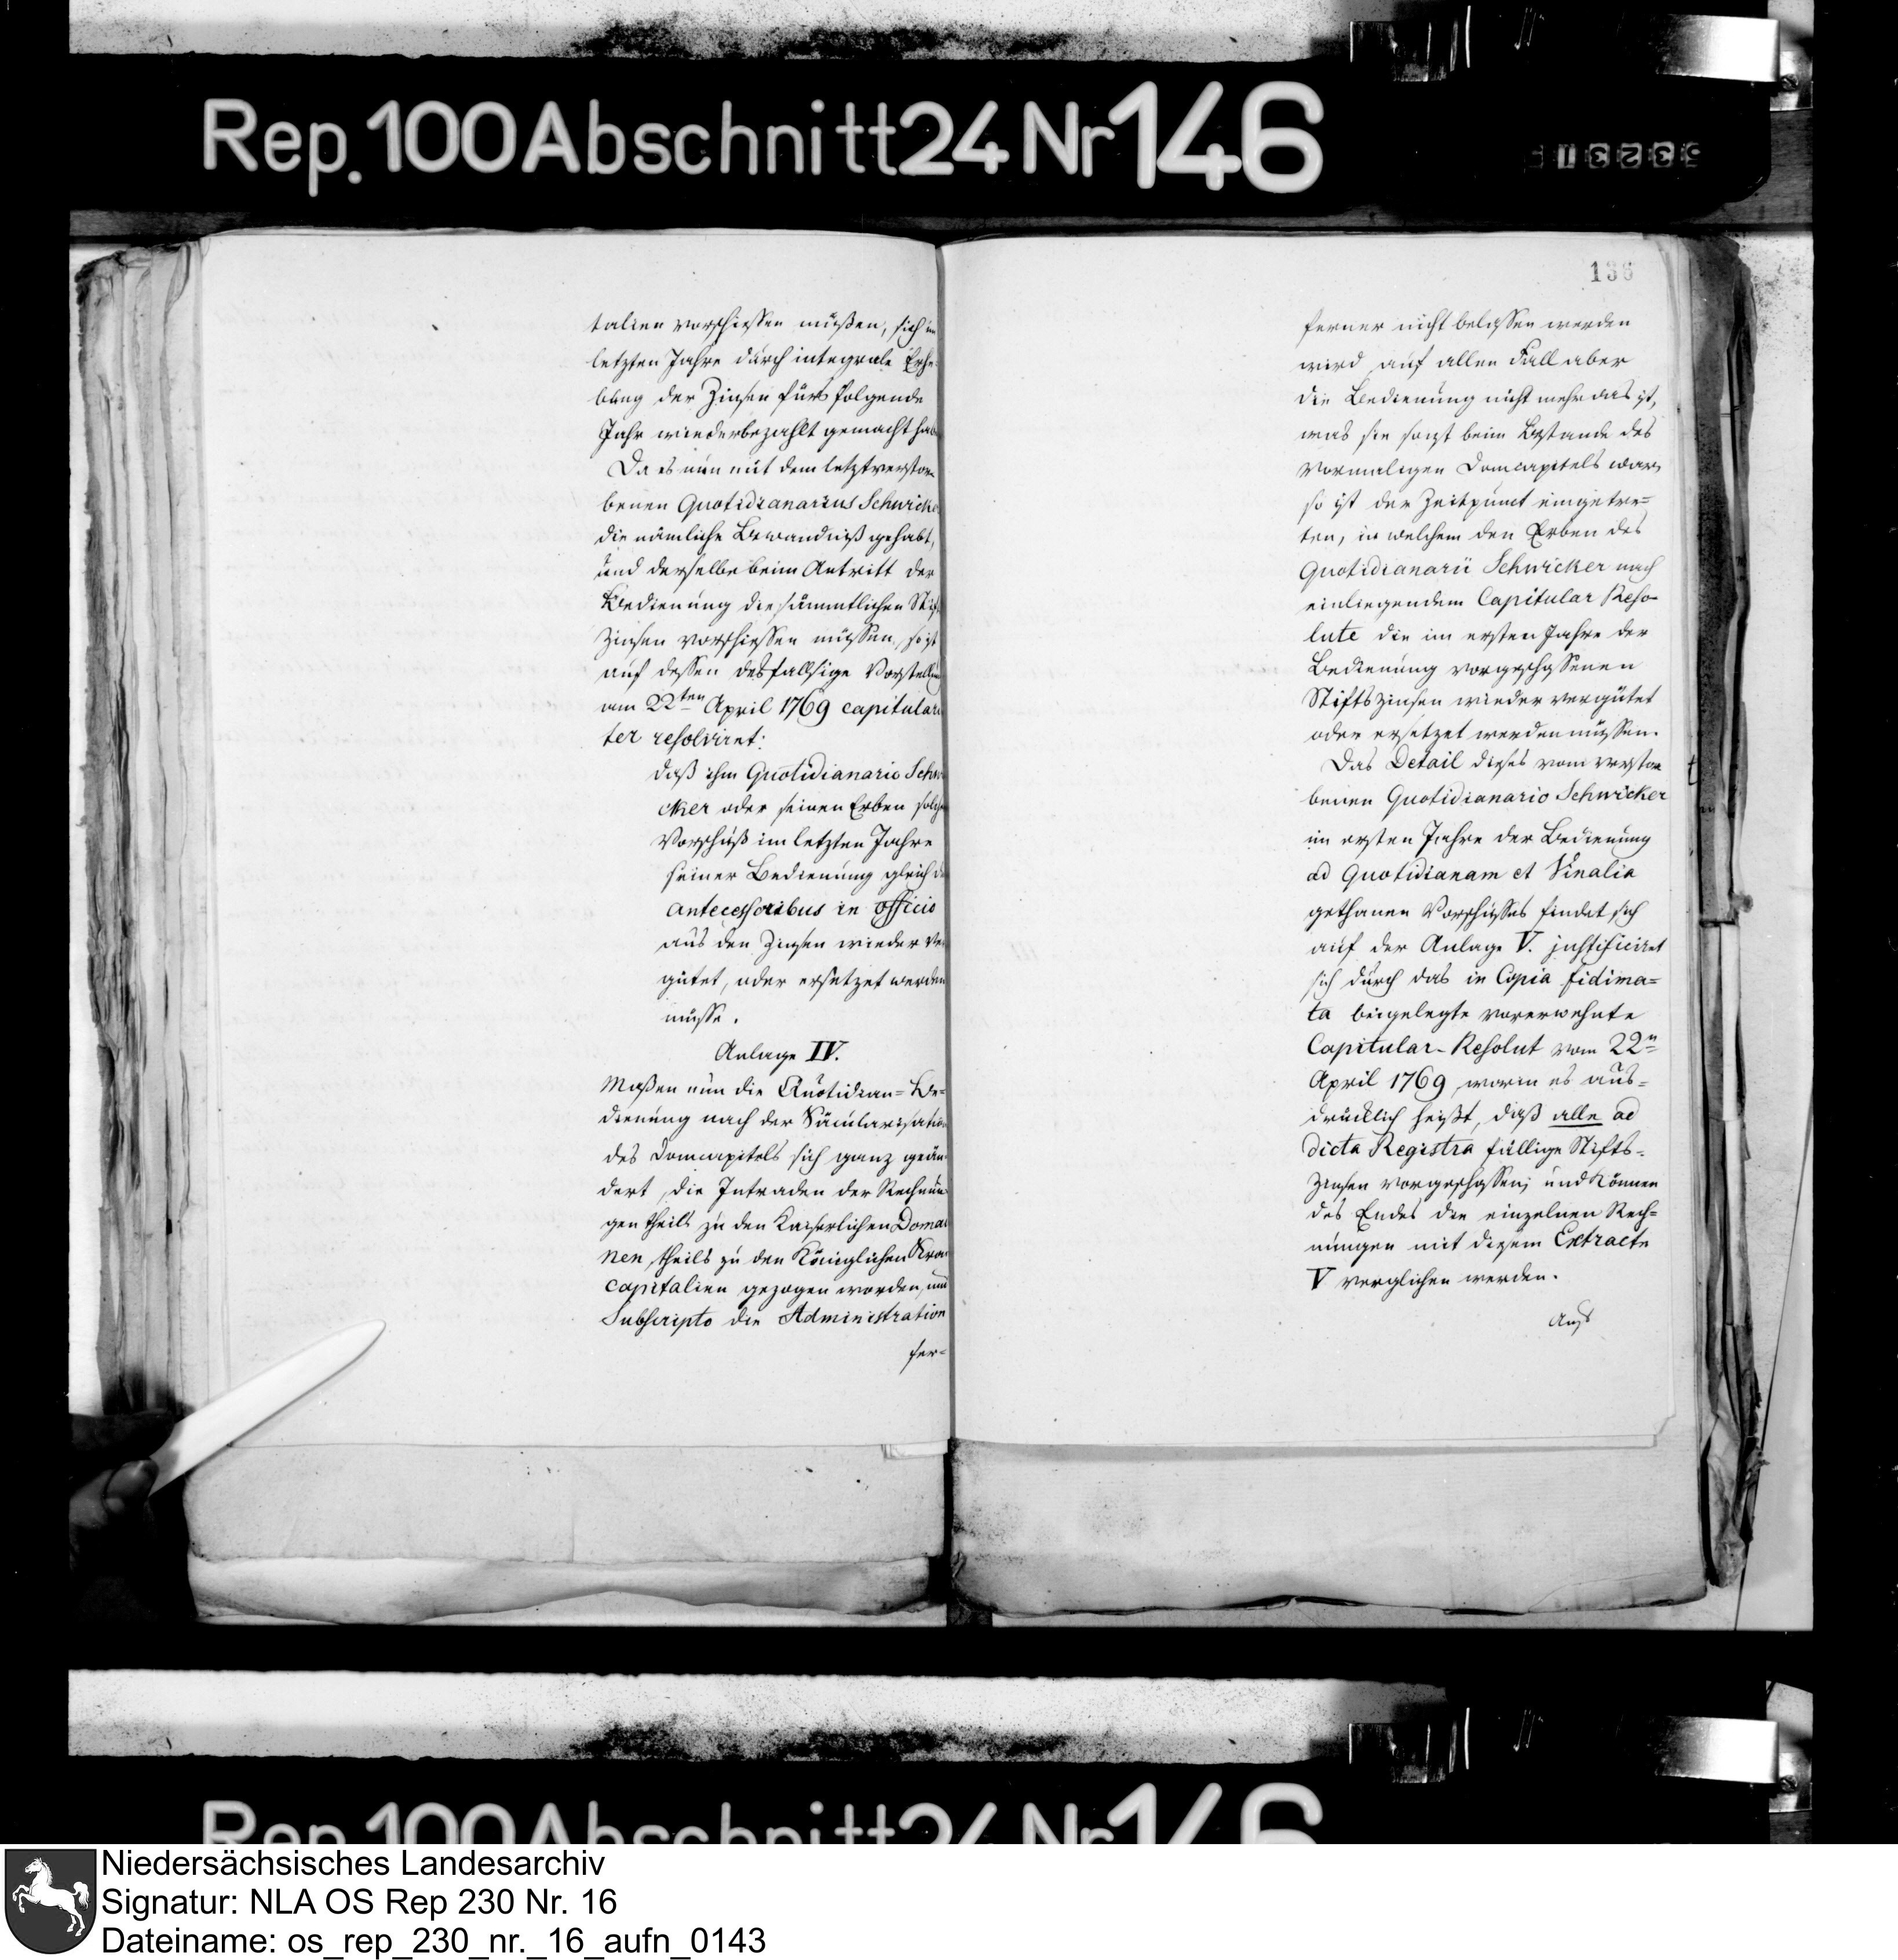 Rep. 100 Abschnitt 24 Nr 146
talien vorschiessen müßen, sich im
letzten Jahre durch integrale Erhe-
bung der Zinsen fürs folgende
Jahr wiederbezahlt gemacht hab
Da es nun mit dem letztverstor
benen Quotidianarius Schwicke
die nämliche Bewandniß gehabt,
und derselbe beim Antritt der
Bedienung die sämmtlichen Stif
Zinsen vorschiessen müssen, so ist
auf dessen desfallsige Vorstellung
am 22ten April 1769 capitulari
ter resolviret:
daß ihm Quotidianario Schwi
cker oder seinen Erben solcher
Vorschuß im letzten Jahre
seiner Bedienung gleich de
antecessoribus in officio
aus den Zinsen wieder ver
gütet, oder ersetzet werden
müsse.
Anlage IV.
Maßen nun die Quotidian= Be=
dienung nach der Säcularisation
des Domcapitels sich ganz geän
dert, die Intraden der Rechnun
gen theils zu den Kaiserlichen Domai
nen, theils zu den Königlichen Kron
capitalien gezogen worden, und
Subscripto die Administration
fer=
136
ferner nicht belassen werden
wird, auf allen Fall aber
die Bedienung nicht mehr das ist,
was sie sonst beim Bestande des
vormaligen Domcapitels war,
so ist der Zeitpunct eingetre=
ten, in welchem den Erben des
Quotidianarii Schwicker nach
einliegendem Capitular Reso-
lute die im ersten Jahre der
Bedienung vorgeschossenen
Stiftszinsen wieder vergütet
oder ersetzet werden müssen.
Das Detail dieses vom verstor
benen Quotidianario Schwicker
im ersten Jahre der Bedienung
ad Quotidianam et Vinalia
gethanen Vorschusses findet sich
auf der Anlage V. justificiret
sich durch das in Copia fidima=
ta beigelegte vorerwehnte
Capitular-Resolut vom 22n
April 1769, worin es aus=
drücklich heißt, daß alle ad
dicta Registra fällige Stifts=
Zinsen vorgeschossen; und können
des Endes die einzelnen Rech=
nungen mit diesem Extracte
V verglichen werden.
Aus
Rep. 100 Abschnitt 24 Nr 146
Niedersächsisches Landesarchiv
Signatur: NLA OS Rep 230 Nr. 16
Dateiname: os_rep_230_nr._16_aufn_0143